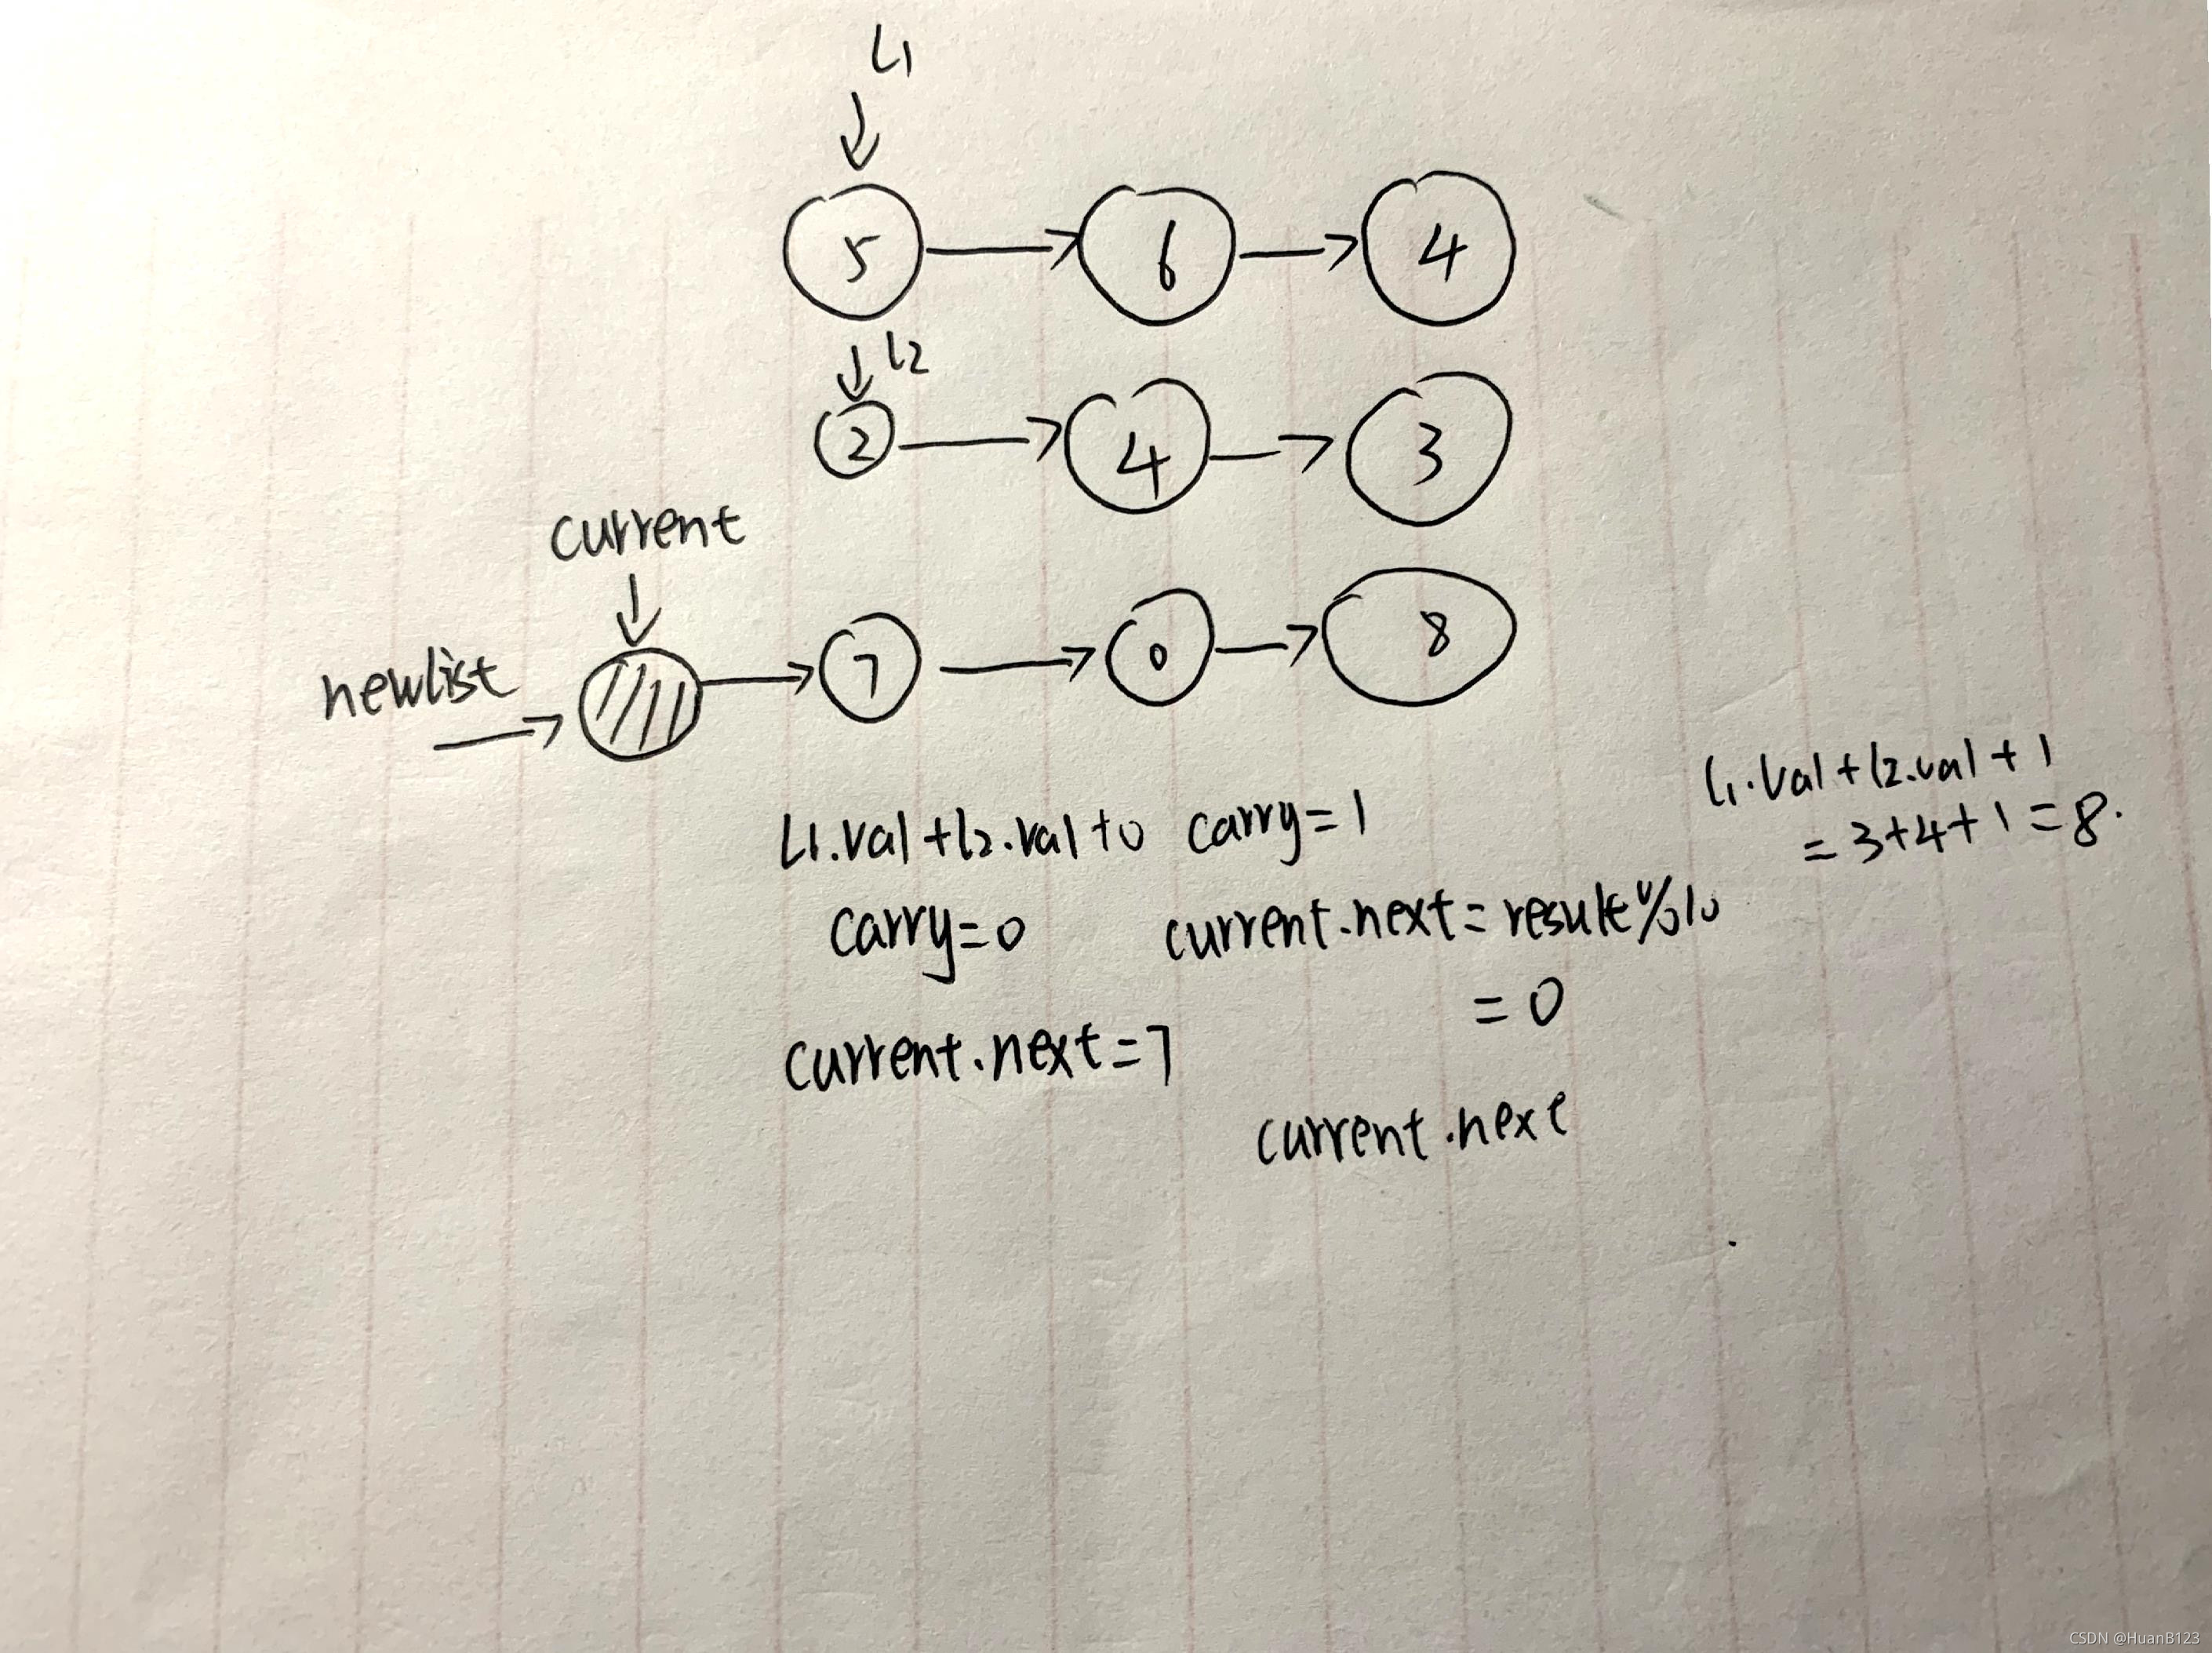 L1
5 6 4
l2
2 4 3
current
newlist
7 0 8
l1.val+l2.val+1
=3+4+1=8.
L1.val+l2.val+0 carry=1
carry=0 current.next=result%10
=0
current.next=7
current.next
CSDN @HuanB123